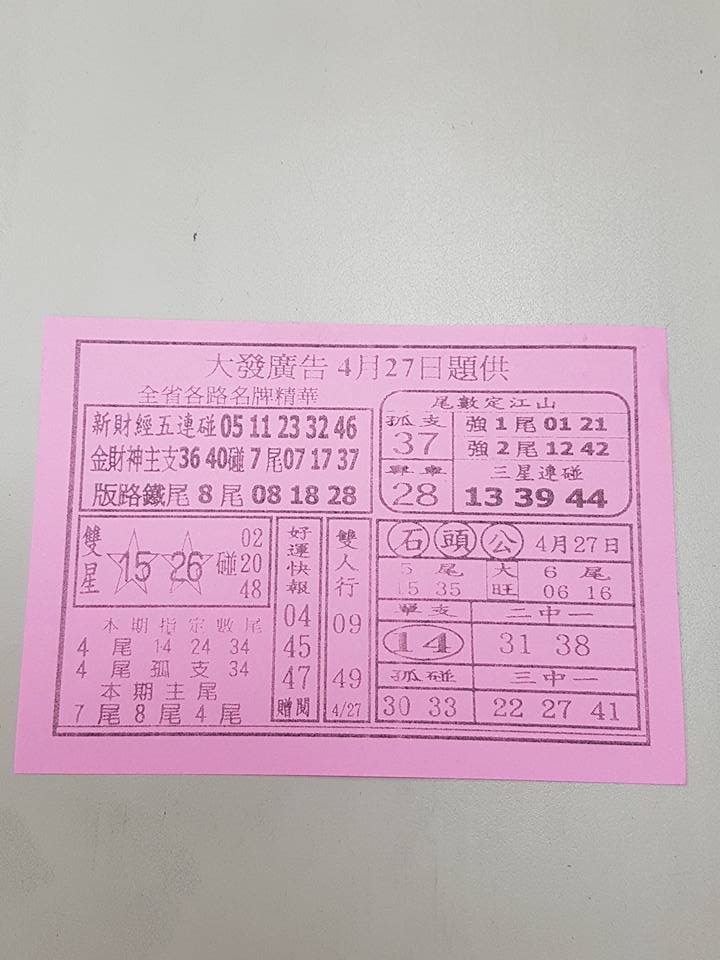 大發廣告 4月27日題供
全省各路名牌精華
新財經五連碰 05 11 23 32 46
金財神主支36 40碰 7 尾07 17 37
版路鐵尾 8 尾 08 18 28
尾數定江山
孤支
37
強 1 尾 01 21
強 2 尾 12 42
28
三星連碰
13 39 44
雙星
15 26 碰
02
20
48
本期指定數尾
4 尾 14 24 34
4 尾孤支 34
本期主尾
7 尾 8 尾 4 尾
好運快報
04
45
47
贈閱
雙人行
09
49
4/27
石頭公 4月27日
5 尾
15 35
大旺
6 尾
06 16
單支
14
二中一
31 38
孤碰
30 33
三中一
22 27 41